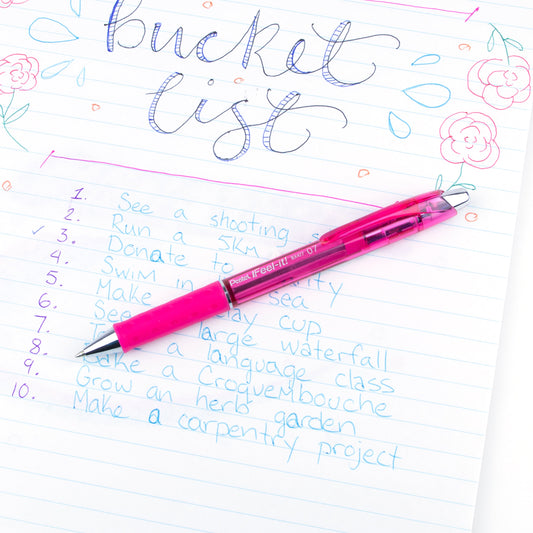 bucket
list
1. See a shooting
2. Run a 5Km
✓ 3. Donate to
4. Swim in sea
5. Make cup
6. See large waterfall
7. a language class
8. Bake a Croquembouche
9. Grow an herb garden
10. Make a carpentry project
Pentel iFeel-it! 0.7